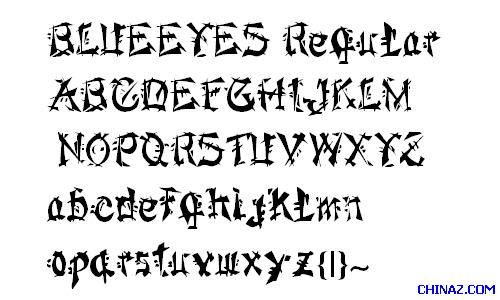 BLUEEYES Regular
ABCDEFGHIJKLM
NOPQRSTUVWXYZ
abcdefghijklmn
opqrstuvwxyz{|}~
CHINAZ.COM